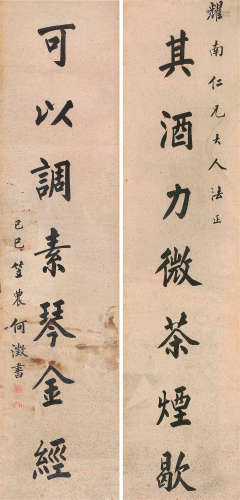 耀南仁兄大人法正
其酒力微茶煙歇
可以調素琴金經
己巳笠農何澂書